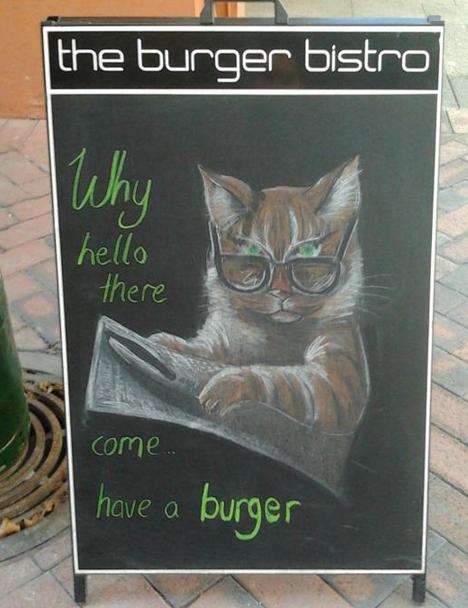 the burger bistro
Why
hello
there
come..
have a burger